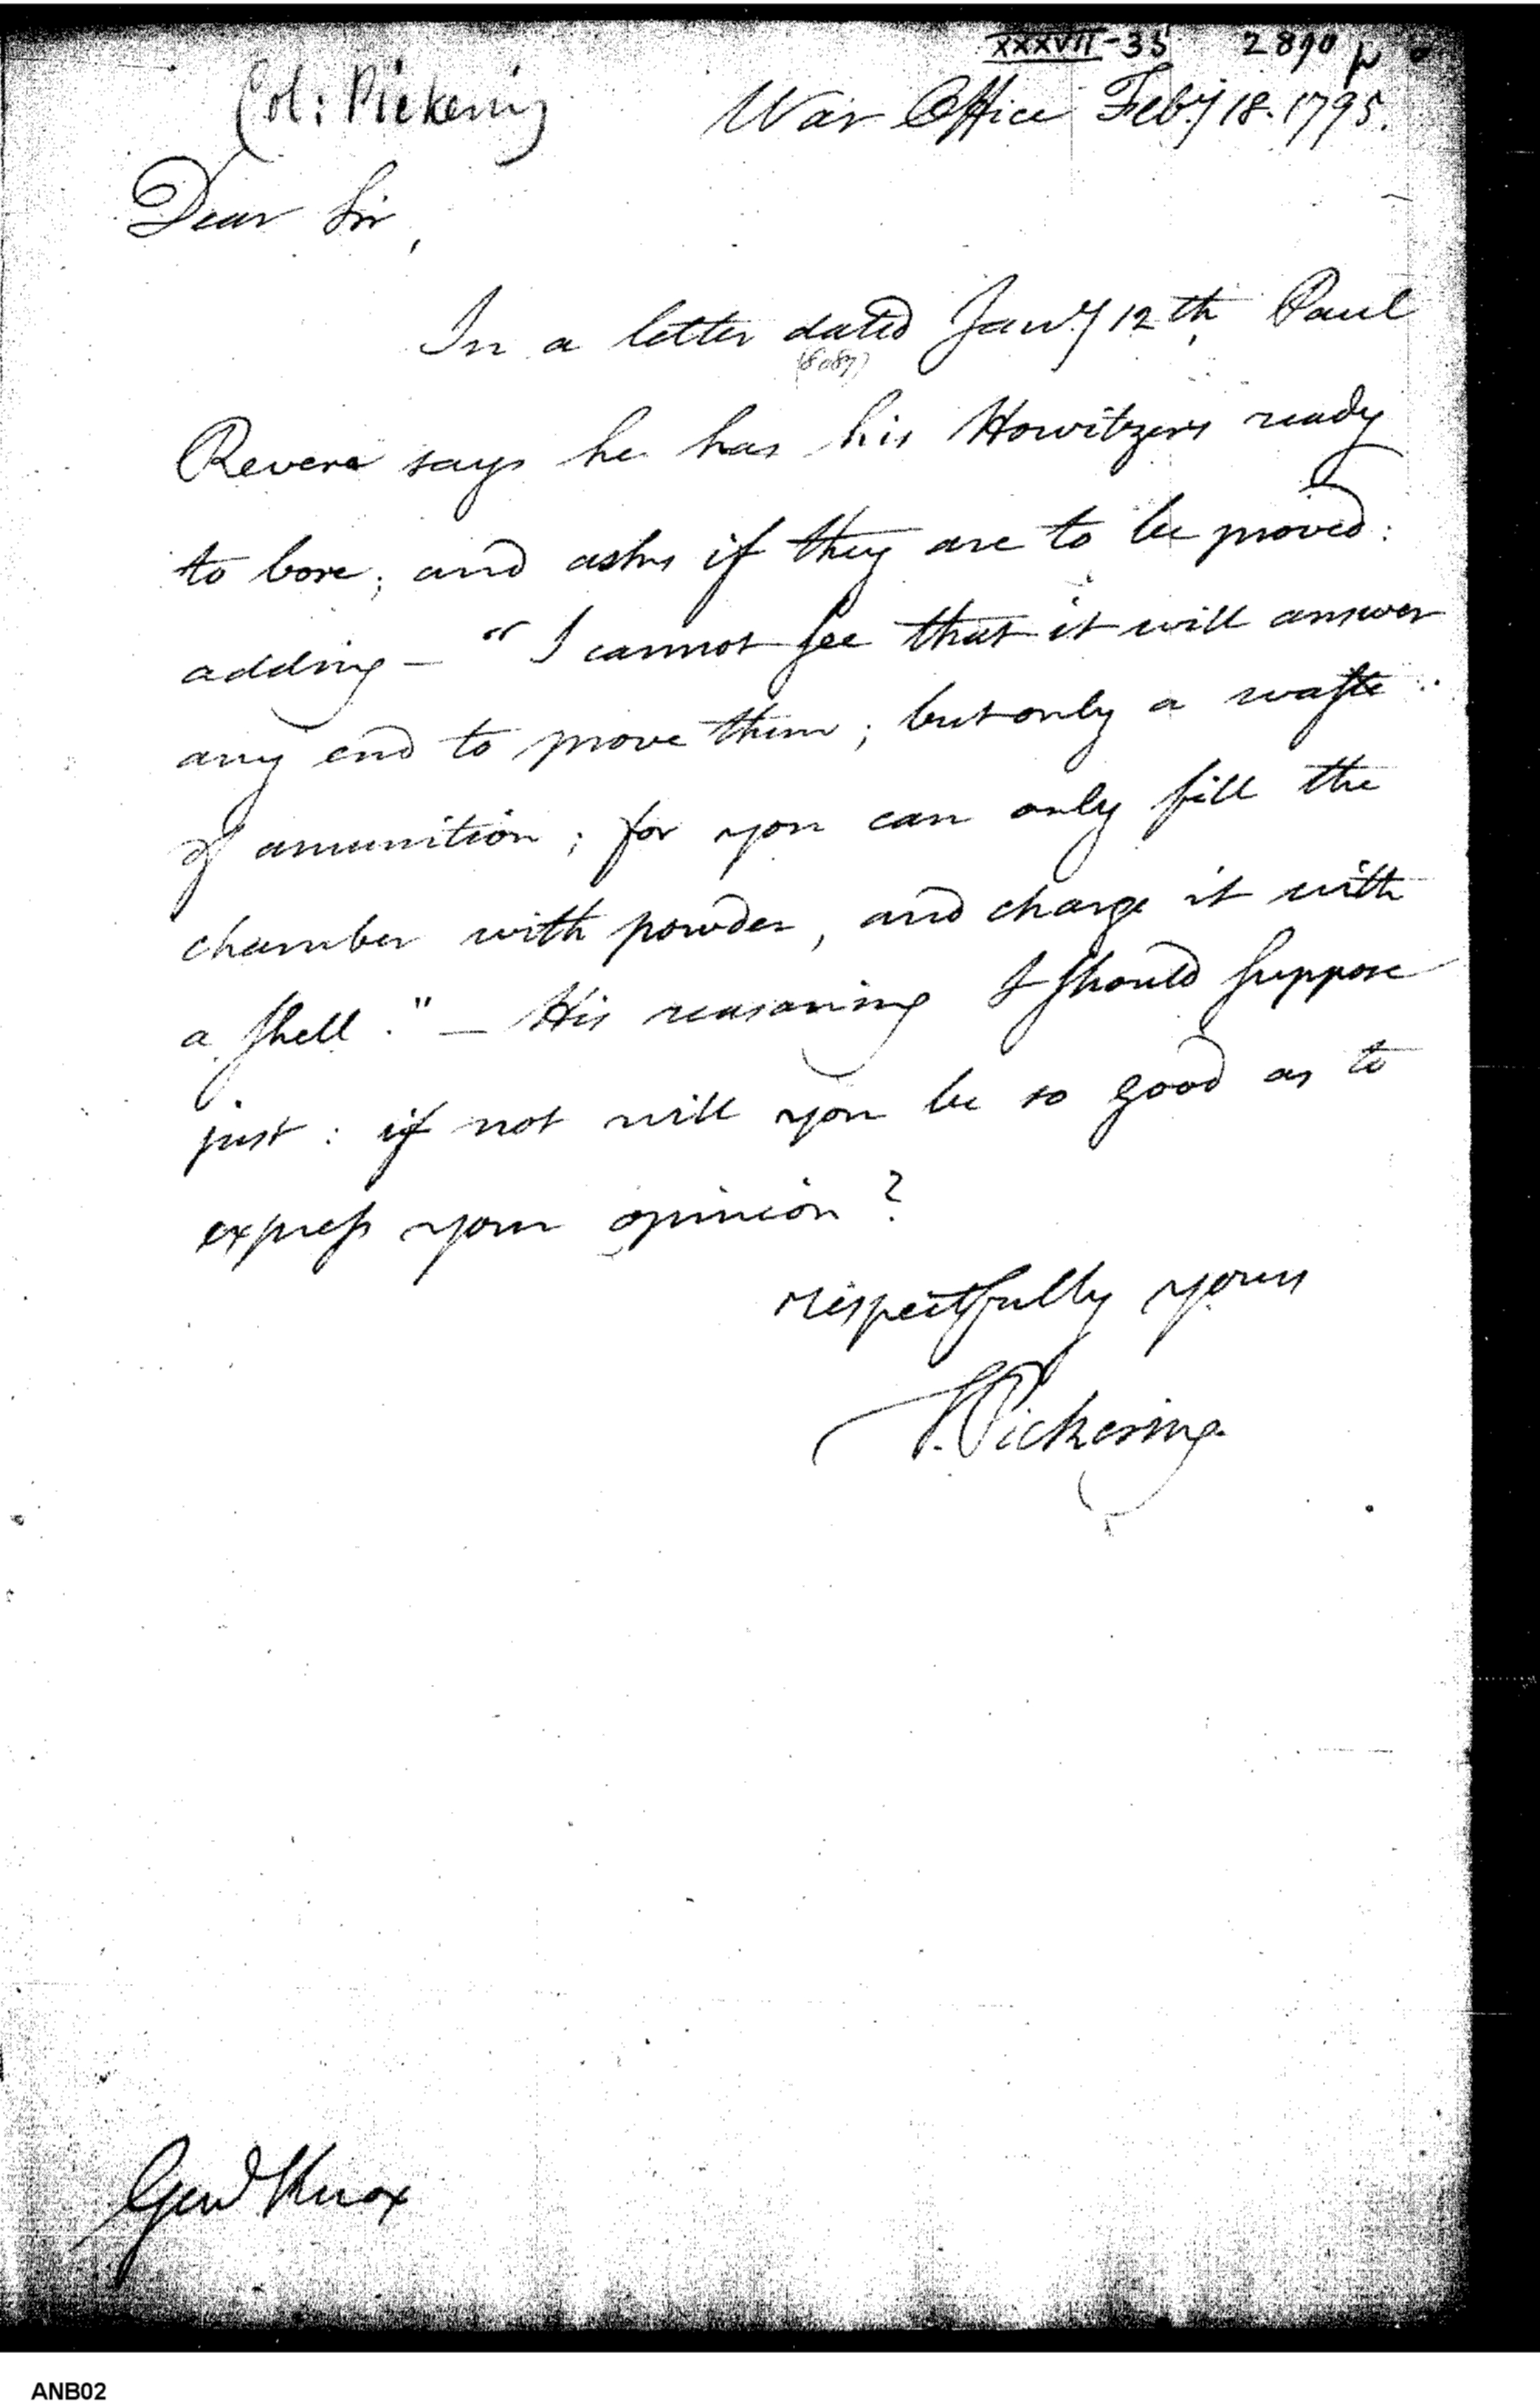 XXXVII-35 2890
Col: Pickering War Office Feby 18. 1795.
Dear Sir,
In a letter dated Jany 12th, Paul
Revere says he has his Howitzers ready
to bore; and asks if they are to be proved:
adding — "I cannot see that it will answer
any end to prove them; but only a waste
of amunition; for you can only fill the
chamber with powder, and charge it with
a shell." — His reasoning I should suppose
just: if not will you be so good as to
express your opinion?
respectfully yours
T. Pickering.
Genl Knox
ANB02